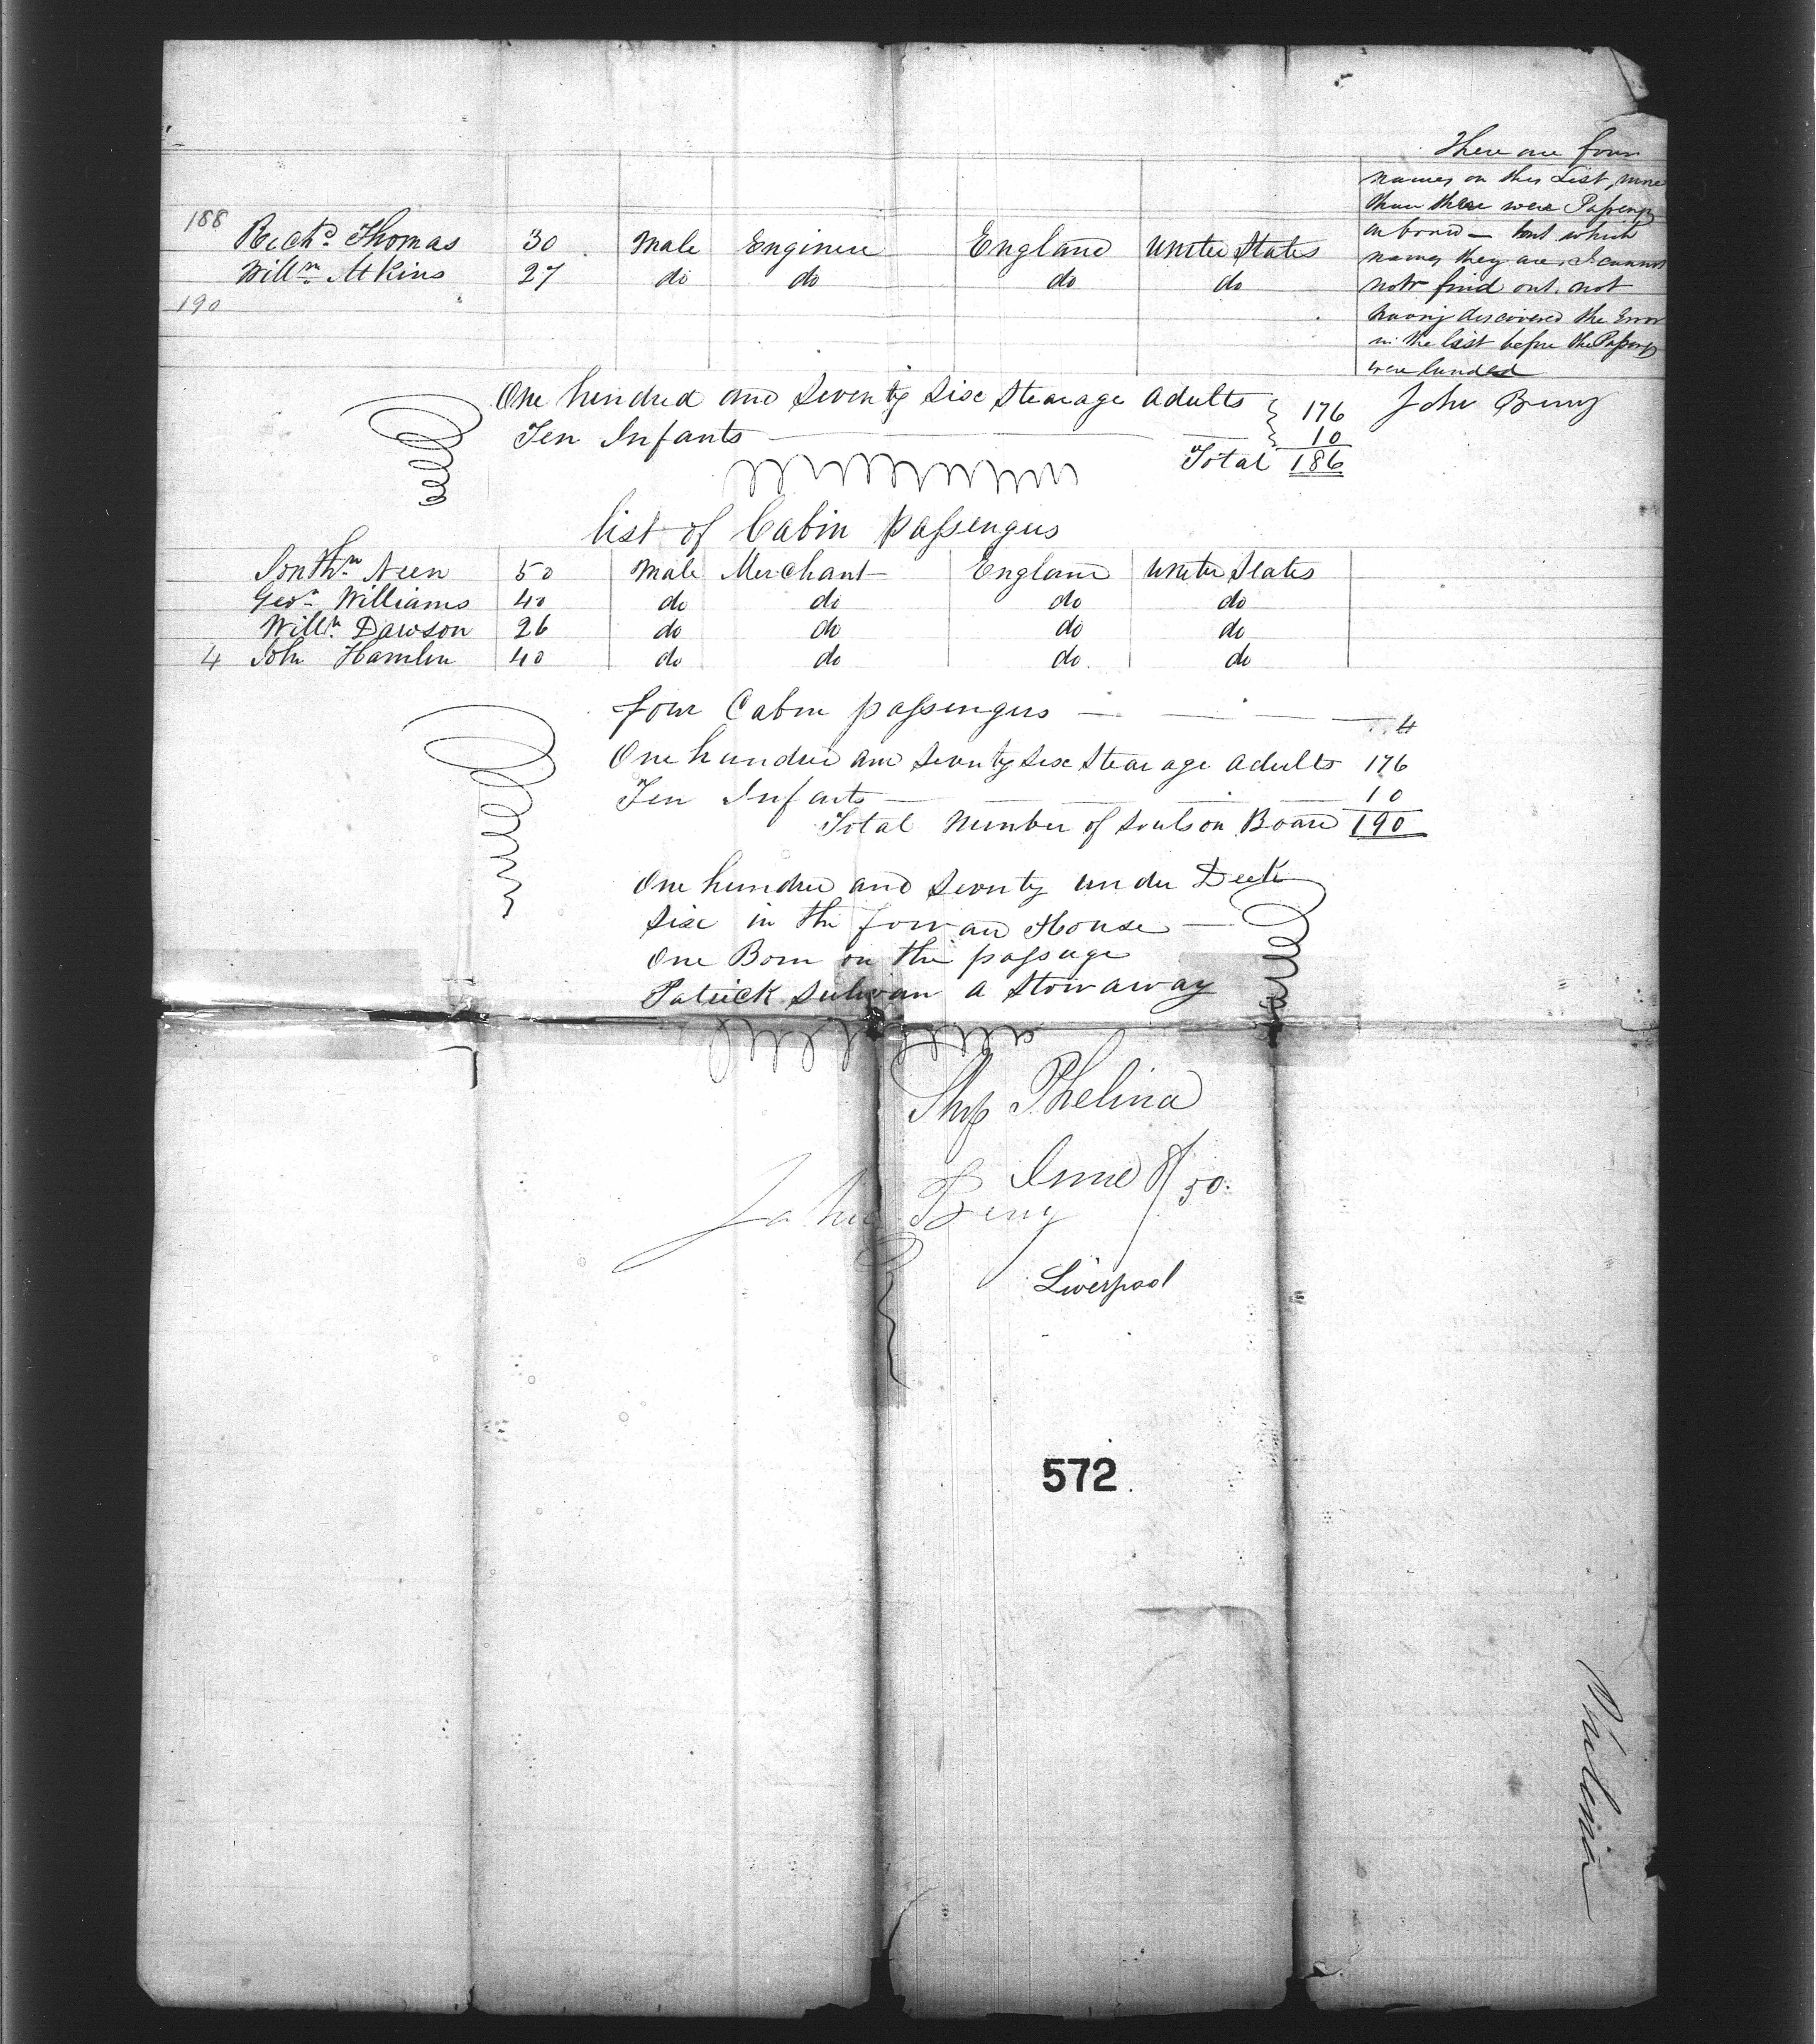 There are four
names on this List, more
than there were Passengrs
on board — but which
names they are, I cannot
not find out, not
having discovered the Error
in the List before the Passengrs
were landed
John Berry
188 Richd. Thomas 30 Male Enginere England United States
Willm. Atkins 27 do do do do
190
One hundred and Seventy Six Stearage Adults 176
Ten Infants 10
Total 186
list of Cabin passengers
50 Male Merchant England United States
Geo. Williams 40 do do do do
Willm. Dawson 26 do do do do
4 John Hamlin 40 do do do do
four Cabin passengers 4
One hundred and Seventy Six Stearage Adults 176
Ten Infants 10
Total Number of Souls on Board 190
One hundred and Seventy under Deck
Six in the forward House
One Born on the passage
Patrick Sulivan a Stowaway
Ship Thelina
June 8/50.
John Berry
Liverpool
572